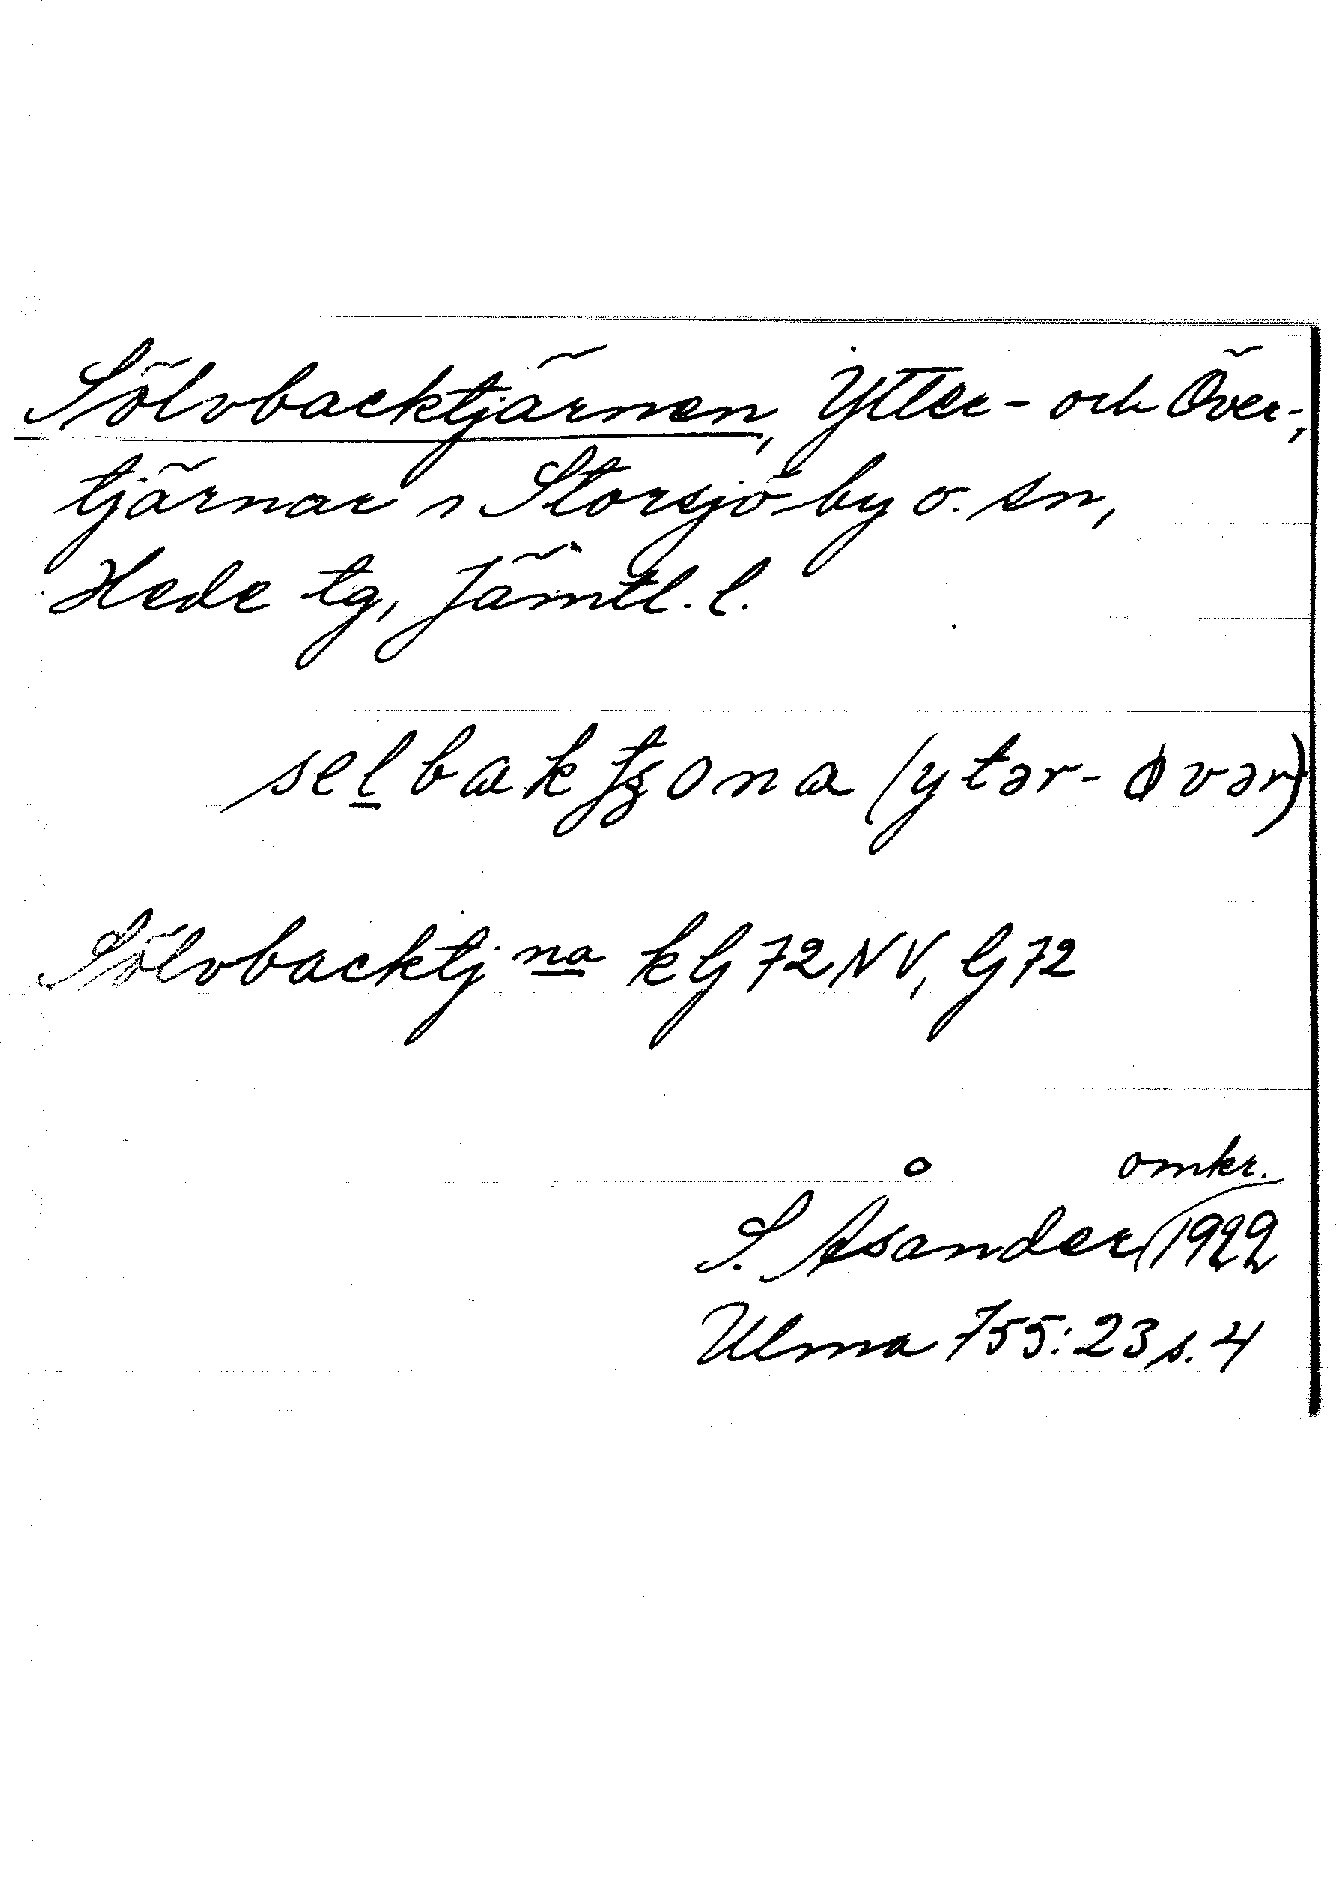 Sölvbacktjärnen, Ytter- och Över-,
tjärnar i Storsjö by o. sn,
Hede tg, Jämtl. l.
selbaktʒona (ytər- øvər)
Sölvbacktj na kG 72 NV, G 72
omkr.
S. Åsander 1922
Ulma 755:23 s. 4